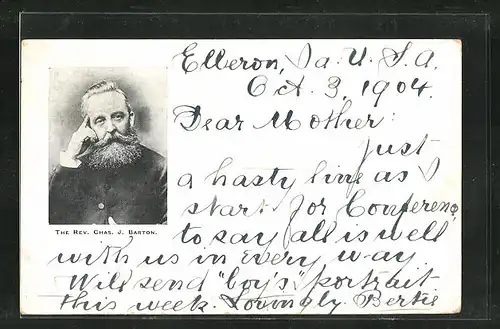 Elberon, Ia. U. S. A.
Oct. 3, 1904.
Dear Mother:
Just
a hasty line as I
start for Conference
to say all is well
with us in every way.
Will send "boy's" portrait
this week. Lovingly Bertie
THE REV. CHAS. J. BARTON.